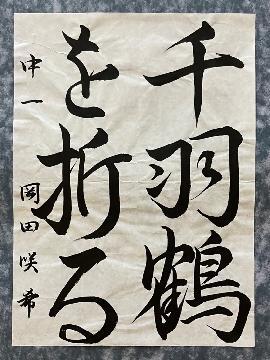 千羽鶴
を折る
中一 岡田咲希